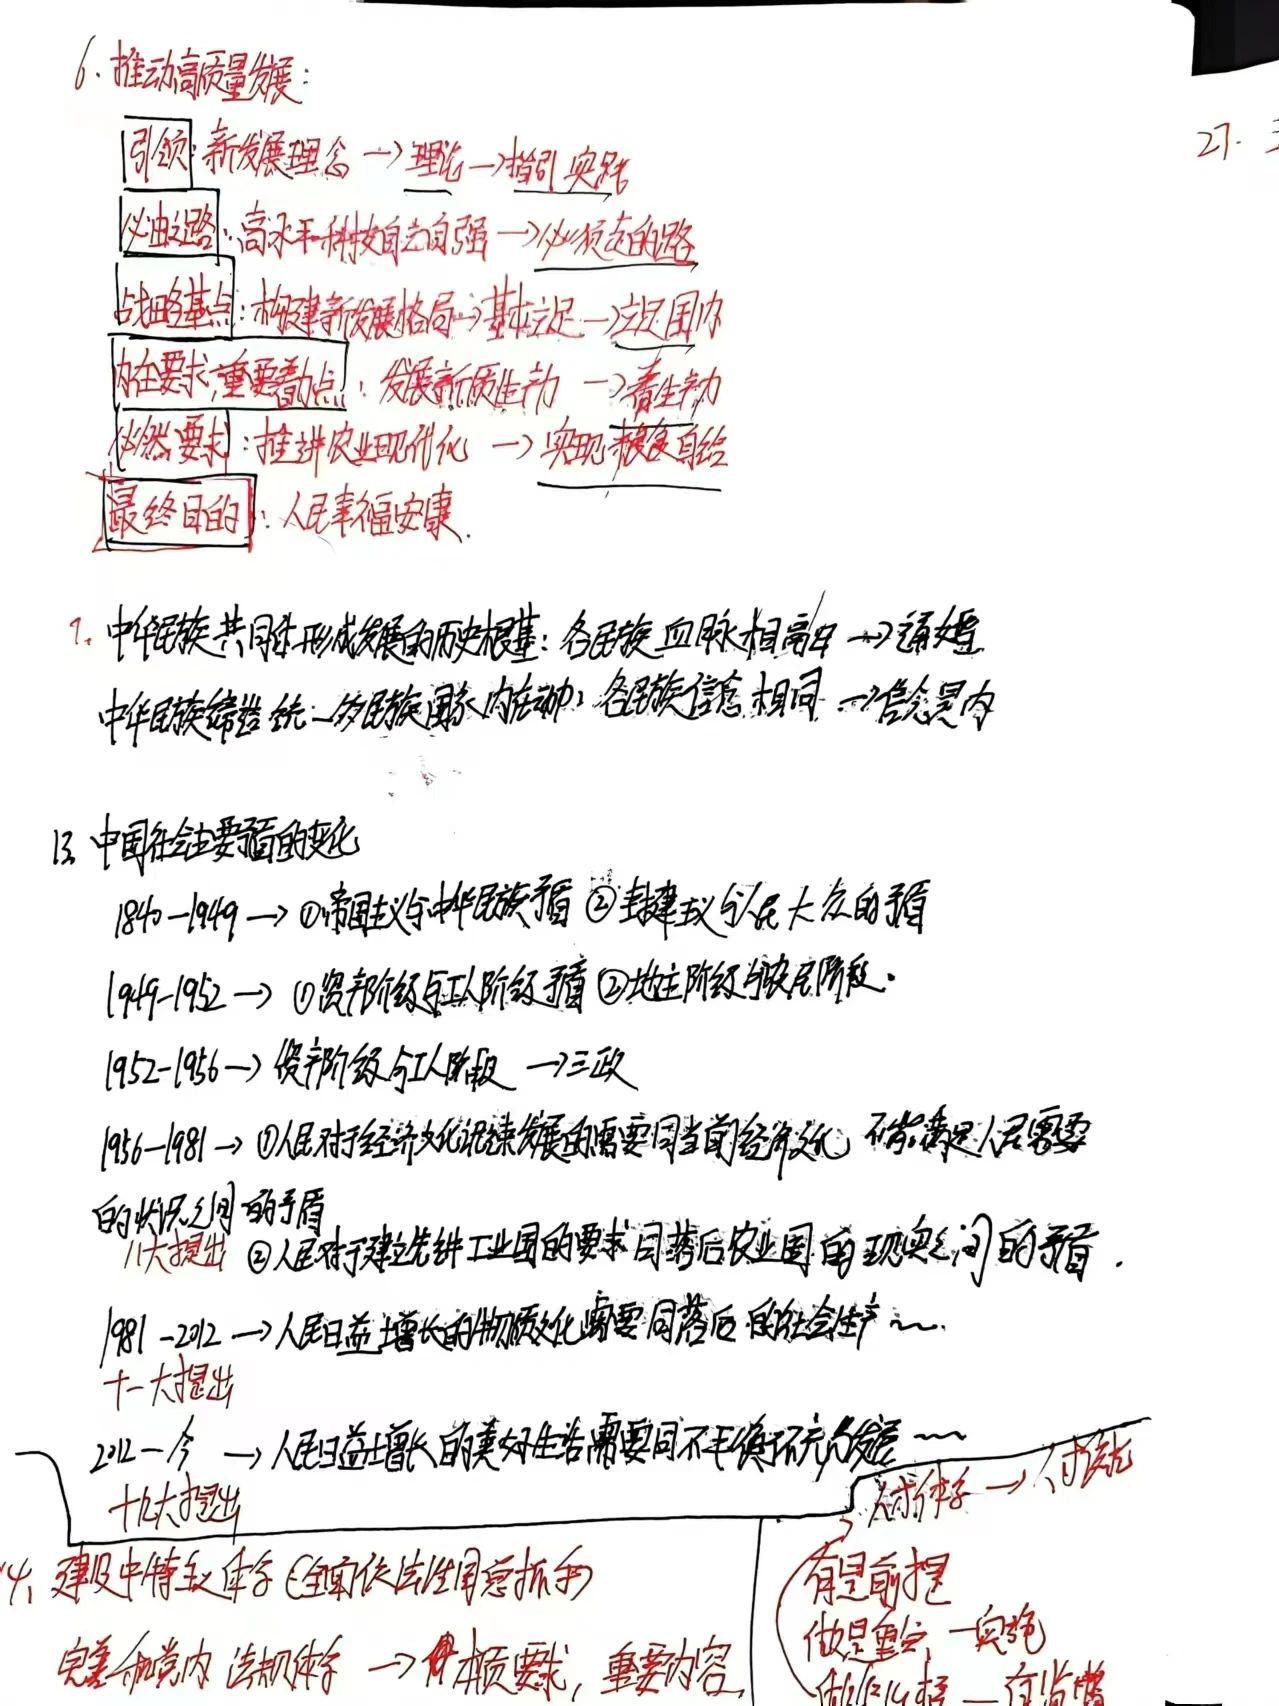 6. 推动高质量发展:
引领: 新发展理念 → 理论 → 指引实践
必由之路: 高水平科技自立自强 → 必须走的路
战略基点: 构建新发展格局 → 基本立足 → 立足国内
内在要求,重要着力点: 发展新质生产力 → 看生产力
必然要求: 推进农业现代化 → 实现粮食自给
最终目的: 人民幸福安康.
7. 中华民族共同体形成发展的历史根基: 各民族血脉相融 → 通婚
中华民族缔造统一多民族国家内在动力: 各民族信念相同 → 信念是内
13. 中国社会主要矛盾的变化
1840-1949 → ①帝国主义与中华民族矛盾 ②封建主义与人民大众的矛盾
1949-1952 → ①资产阶级与工人阶级矛盾 ②地主阶级与农民阶段.
1952-1956 → 资产阶级与工人阶段 → 三政
1956-1981 → ①人民对于经济文化迅速发展的需要同当前经济文化 不能满足人民需要
的状况之间的矛盾
八大提出 ②人民对于建立先进工业国的要求同落后农业国的现实之间的矛盾.
1981-2012 → 人民日益增长的物质文化需要同落后的社会生产~~.
十一大提出
2012-今 → 人民日益增长的美好生活需要同不平衡不充分发展~~
十九大提出
27.
14. 建设中特主义体系(全面依法治国总抓手)
完善和党内法规体系 → 本质要求, 重要内容,
有是前提
做是重点, — 实施